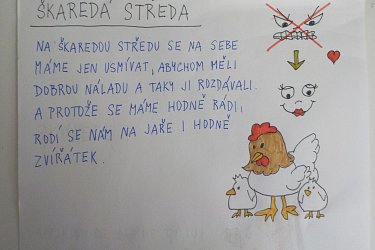 ŠKAREDÁ STŘEDA
NA ŠKAREDOU STŘEDU SE NA SEBE
MÁME JEN USMÍVAT, ABYCHOM MĚLI
DOBROU NÁLADU A TAKY JI ROZDÁVALI.
A PROTOŽE SE MÁME HODNĚ RÁDI,
RODÍ SE NÁM NA JAŘE I HODNĚ
ZVÍŘÁTEK.